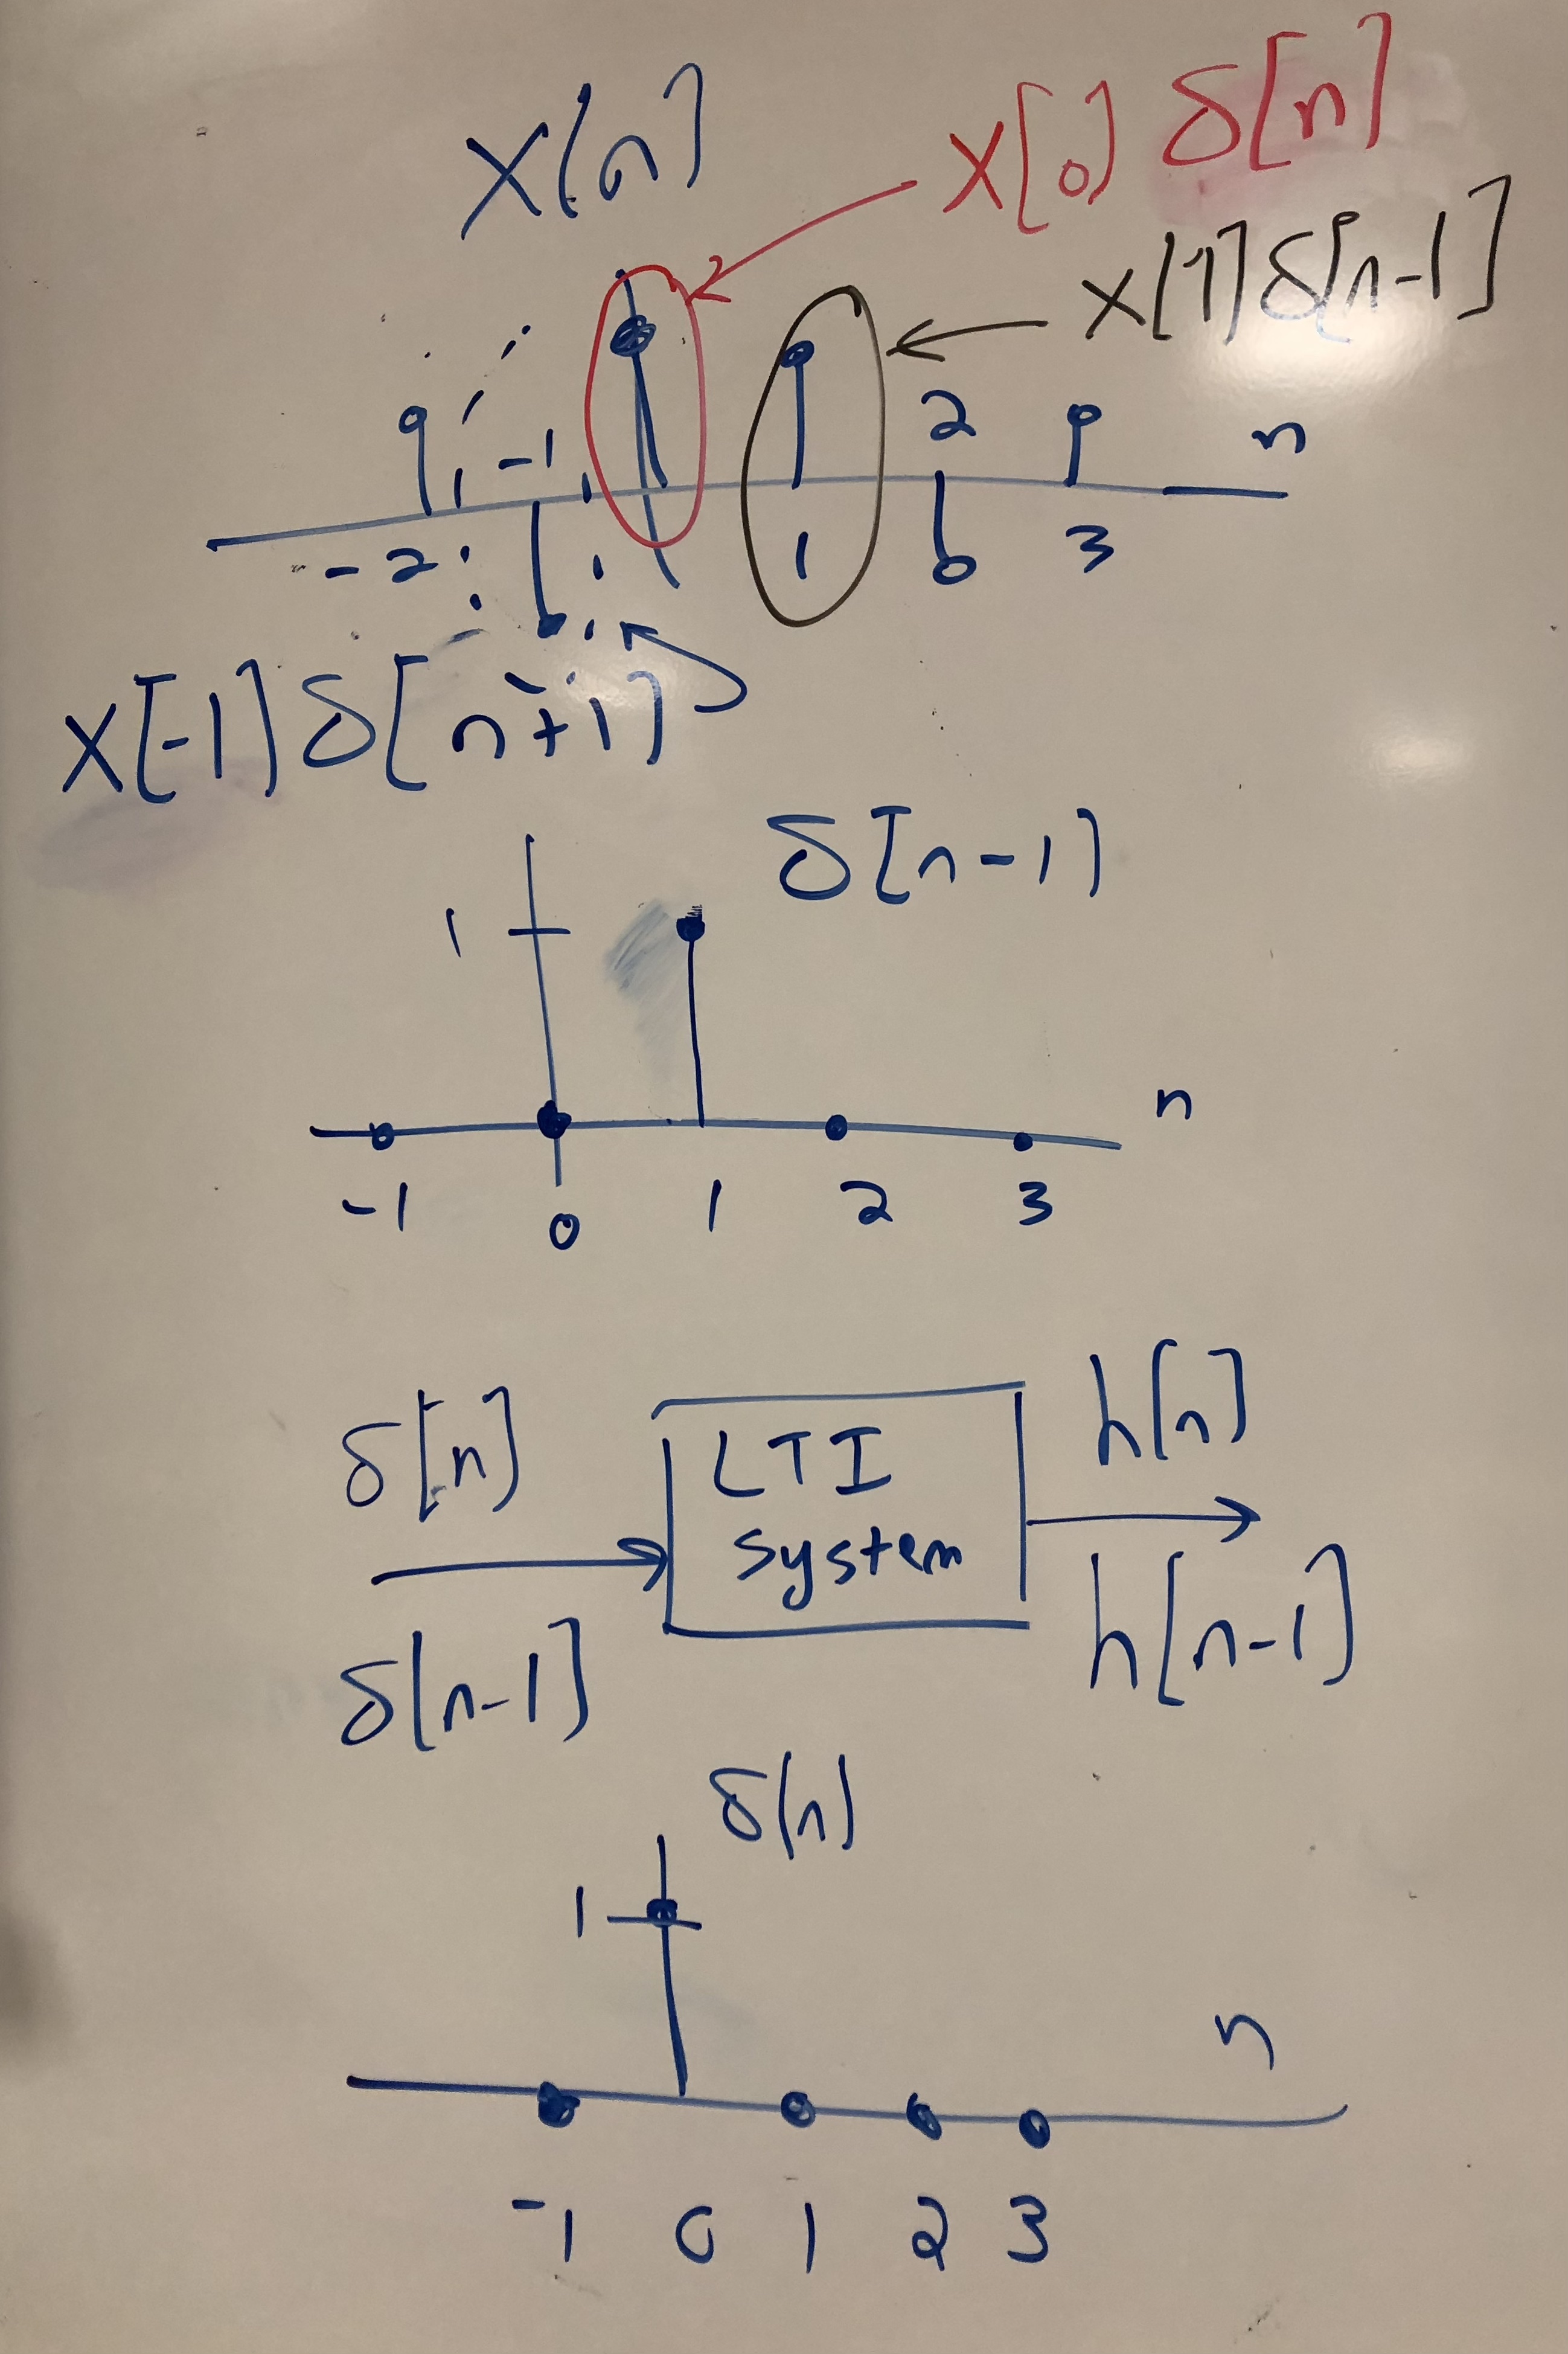 x[n]
x[0] δ[n]
x[1] δ[n-1]
-1 2 n
-2 1 3
x[-1] δ[n+1]
δ[n-1]
1
n
-1 0 1 2 3
δ[n] h[n]
LTI
system
δ[n-1] h[n-1]
δ[n]
1
n
-1 0 1 2 3